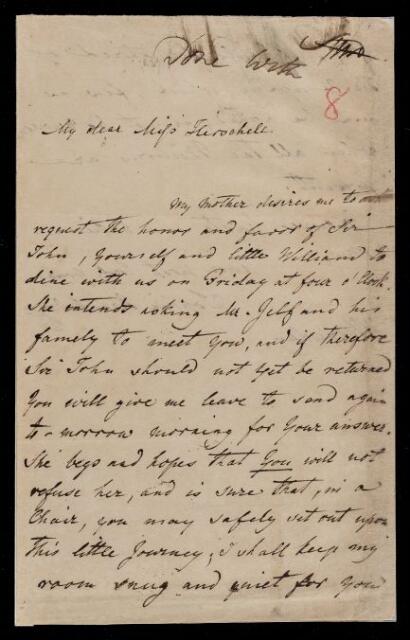 Done with
8
My dear Miss Herschell
My Mother desires me to
request the honor and favor of Sir
John, yourself and little William to
dine with us on Friday at four o'Clock.
She intends asking Mr. Jelf and his
family to meet you, and if therefore
Sir John should not yet be returned
you will give me leave to send again
to-morrow morning for your answer.
She begs and hopes that you will not
refuse her, and is sure that, in a
Chair, you may safely set out upon
this little Journey; I shall keep my
room snug and quiet for you